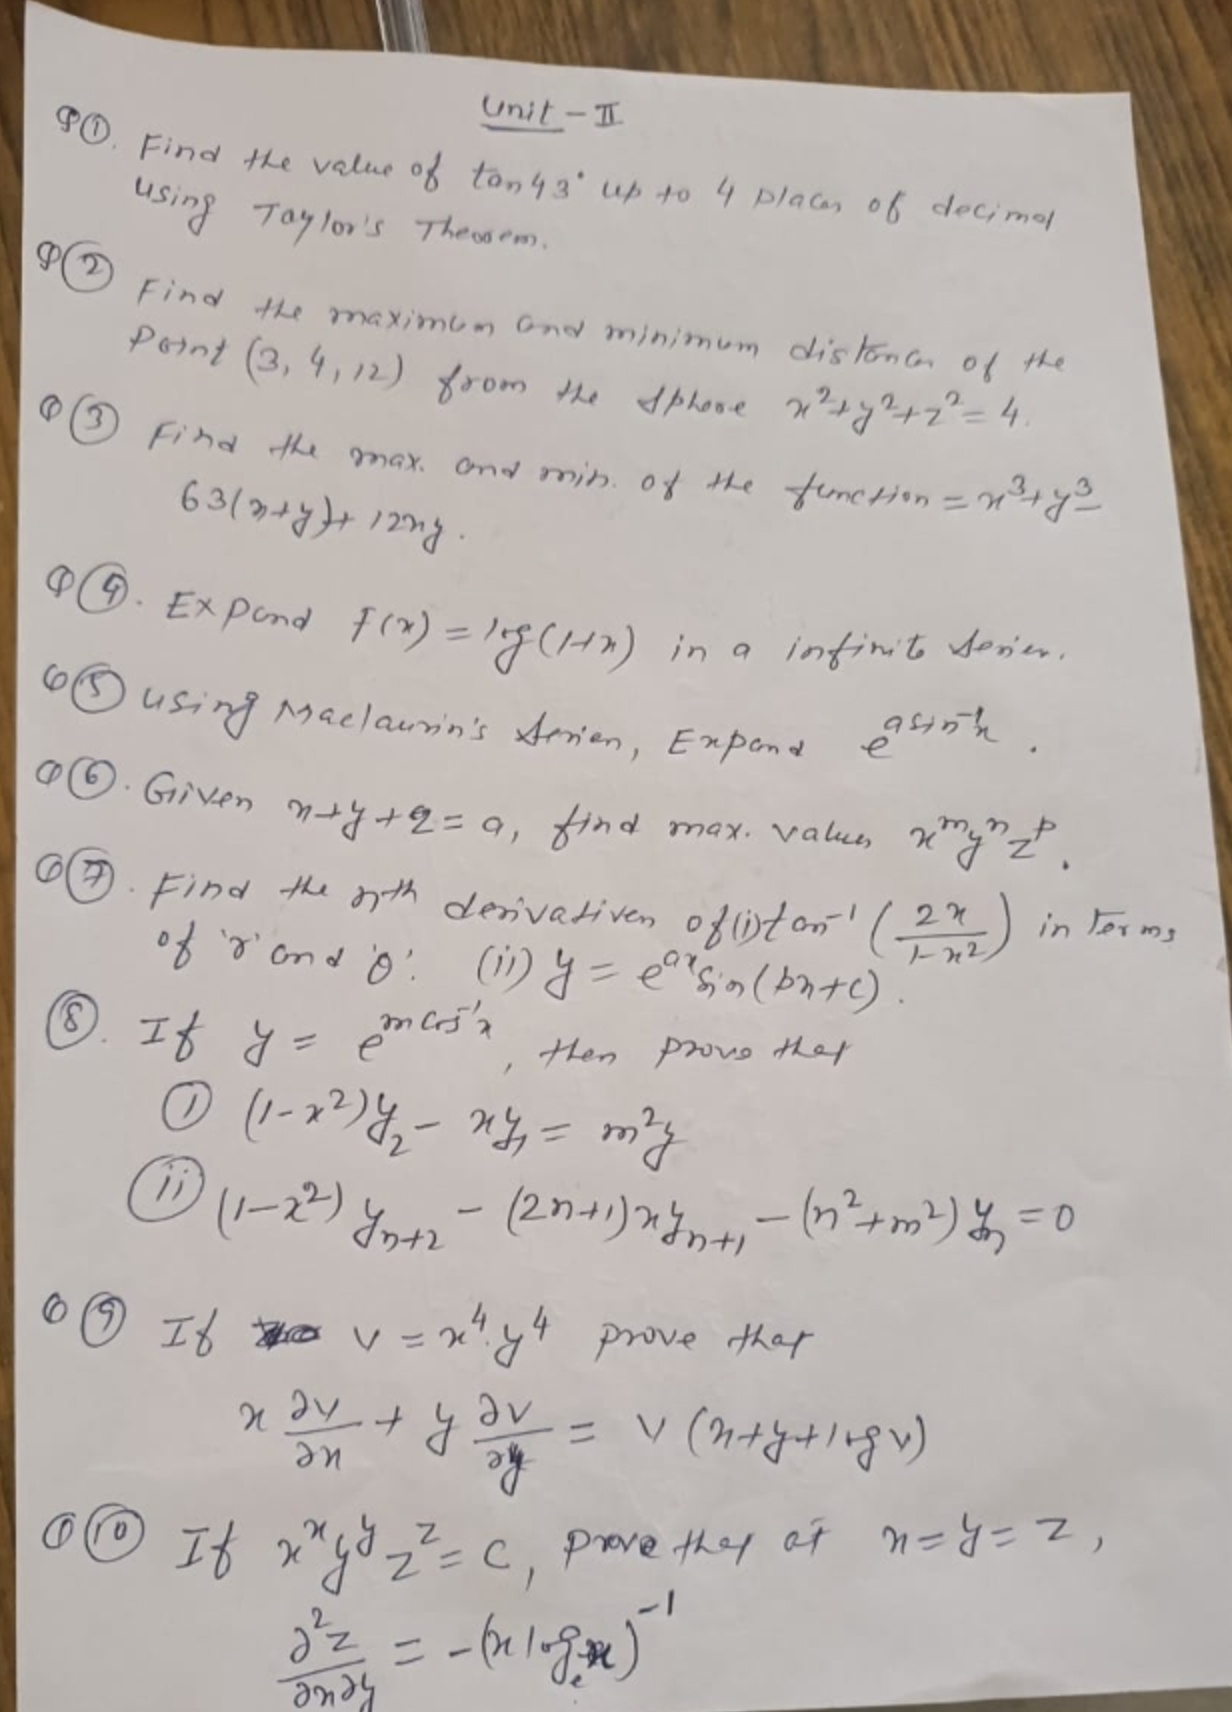 Unit - II
Q①. Find the value of tan43° up to 4 places of decimal
using Taylor's Theorem.
Q② Find the maximum and minimum distance of the
Point (3, 4, 12) from the sphere x²+y²+z² = 4.
Q③ Find the max. and min. of the function = x³+y³-
63(x+y)+ 12xy.
Q④. Expand F(x) = log(1+x) in a infinite series.
Q⑤ using Maclaurin's series, Expand e^(a sin⁻¹x).
Q⑥. Given x+y+z = a, find max. values x^m y^n z^p.
Q⑦. Find the nth derivatives of (i) tan⁻¹ (2x/(1-x²)) in terms
of 'r' and 'θ'. (ii) y = e^(ax) sin(bx+c).
⑧. If y = e^(m cos⁻¹x), then prove that
① (1-x²)y₂ - xy₁ = m²y
ⅱ (1-x²) yₙ₊₂ - (2n+1)xyₙ₊₁ - (n²+m²) yₙ = 0
Q⑨ If v = x⁴.y⁴ prove that
x ∂v/∂x + y ∂v/∂y = v (x+y+log v)
Q⑩ If x^x y^y z^z = c, prove that at x=y=z,
∂²z/∂x∂y = -(x logₑx)⁻¹